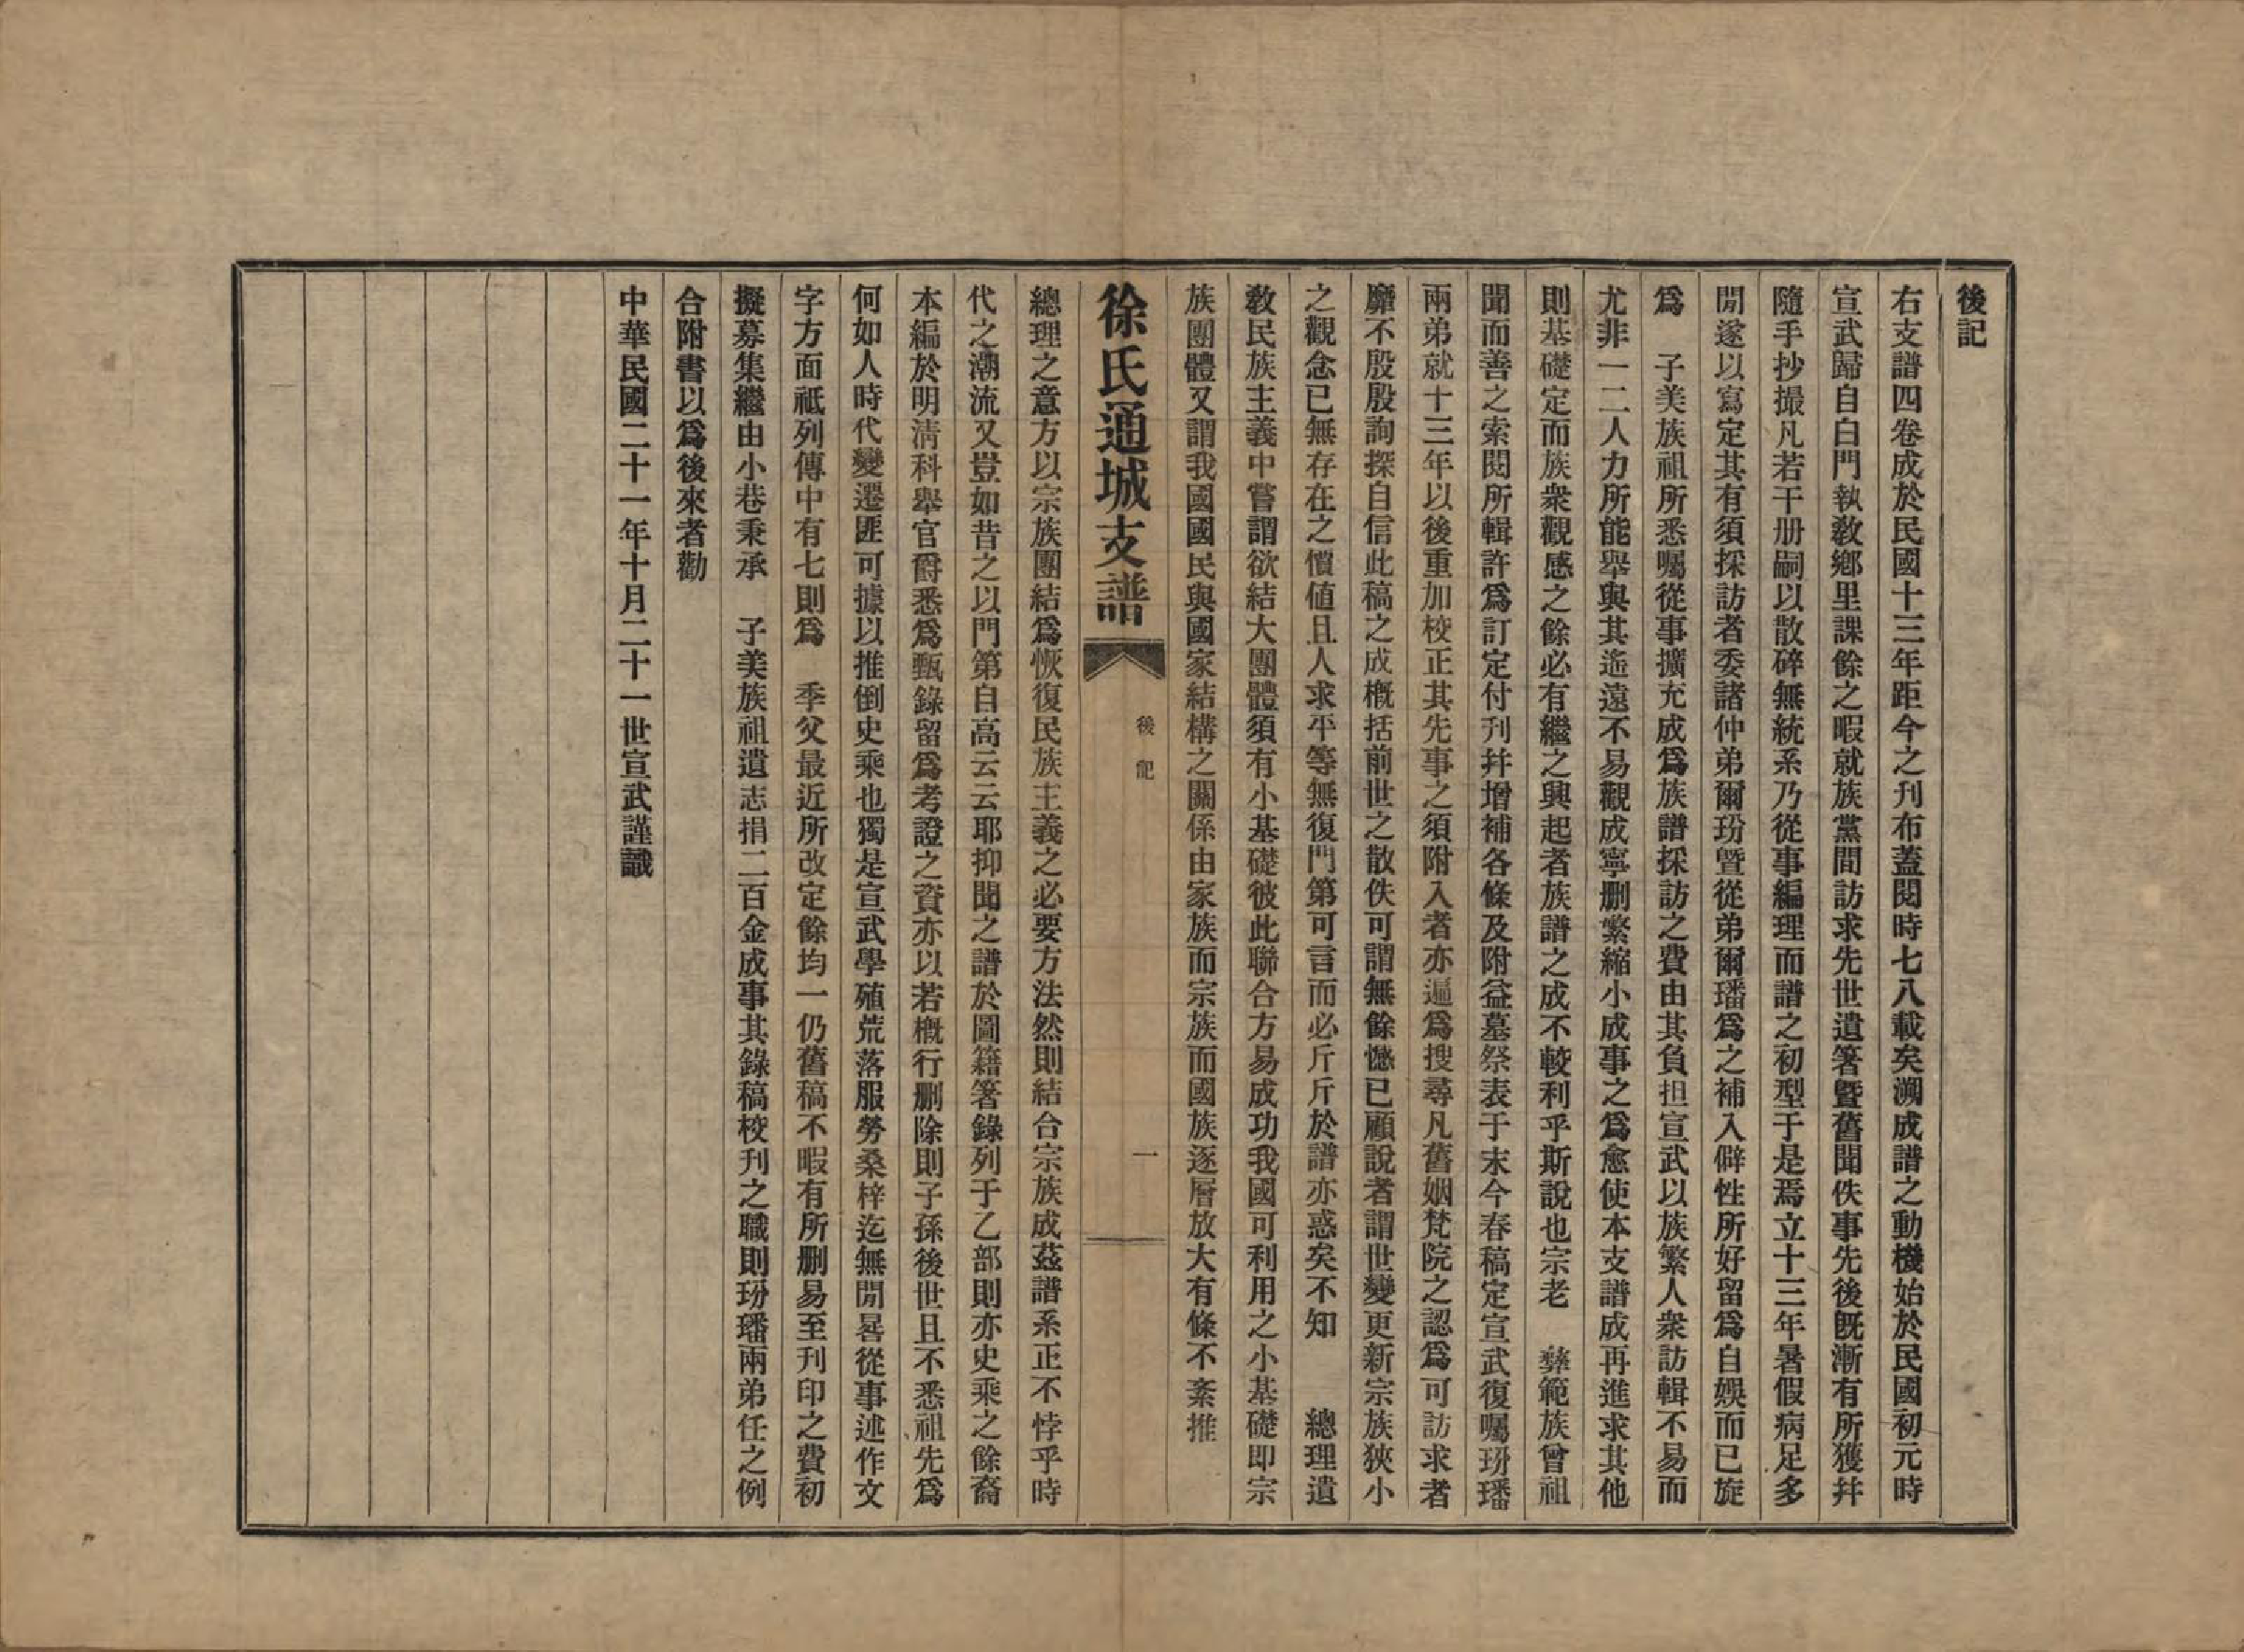 後記
右支譜四卷成於民國十三年距今之刋布蓋閱時七八載矣溯成譜之動機始於民國初元時
宣武歸自白門執敎鄉里課餘之暇就族黨間訪求先世遺箸曁舊聞佚事先後旣漸有所獲幷
隨手抄撮凡若干册嗣以散碎無統系乃從事編理而譜之初型于是焉立十三年暑假病足多
閒遂以寫定其有須採訪者委諸仲弟爾玢曁從弟爾璠爲之補入僻性所好留爲自娛而已旋
爲　子美族祖所悉囑從事擴充成爲族譜採訪之費由其負担宣武以族繁人衆訪輯不易而
尤非一二人力所能舉與其遙遠不易觀成寧删繁縮小成事之爲愈使本支譜成再進求其他
則基礎定而族衆觀感之餘必有繼之興起者族譜之成不較利乎斯說也宗老　彝範族曾祖
聞而善之索閱所輯許爲訂定付刋幷增補各條及附益墓祭表于末今春稿定宣武復囑玢璠
兩弟就十三年以後重加校正其先事之須附入者亦遍爲搜尋凡舊姻梵院之認爲可訪求者
靡不殷殷詢探自信此稿之成槪括前世之散佚可謂無餘憾已顧說者謂世變更新宗族狹小
之觀念已無存在之價値且人求平等無復門第可言而必斤斤於譜亦惑矣不知　　總理遺
敎民族主義中嘗謂欲結大團體須有小基礎彼此聯合方易成功我國可利用之小基礎即宗
族團體又謂我國國民與國家結構之關係由家族而宗族而國族逐層放大有條不紊推
徐氏通城支譜
後記
一
總理之意方以宗族團結爲恢復民族主義之必要方法然則結合宗族成茲譜系正不悖乎時
代之潮流又豈如昔之以門第自高云云耶抑聞之譜於圖籍箸錄列于乙部則亦史乘之餘裔
本編於明淸科舉官爵悉爲甄錄留爲考證之資亦以若槪行删除則子孫後世且不悉祖先爲
何如人時代變遷匪可據以推倒史乘也獨是宣武學殖荒落服勞桑梓迄無閒晷從事述作文
字方面祇列傳中有七則爲　季父最近所改定餘均一仍舊稿不暇有所删易至刊印之費初
擬募集繼由小巷秉承　子美族祖遺志捐二百金成事其錄稿校刋之職則玢璠兩弟任之例
合附書以爲後來者勸
中華民國二十一年十月二十一世宣武謹識